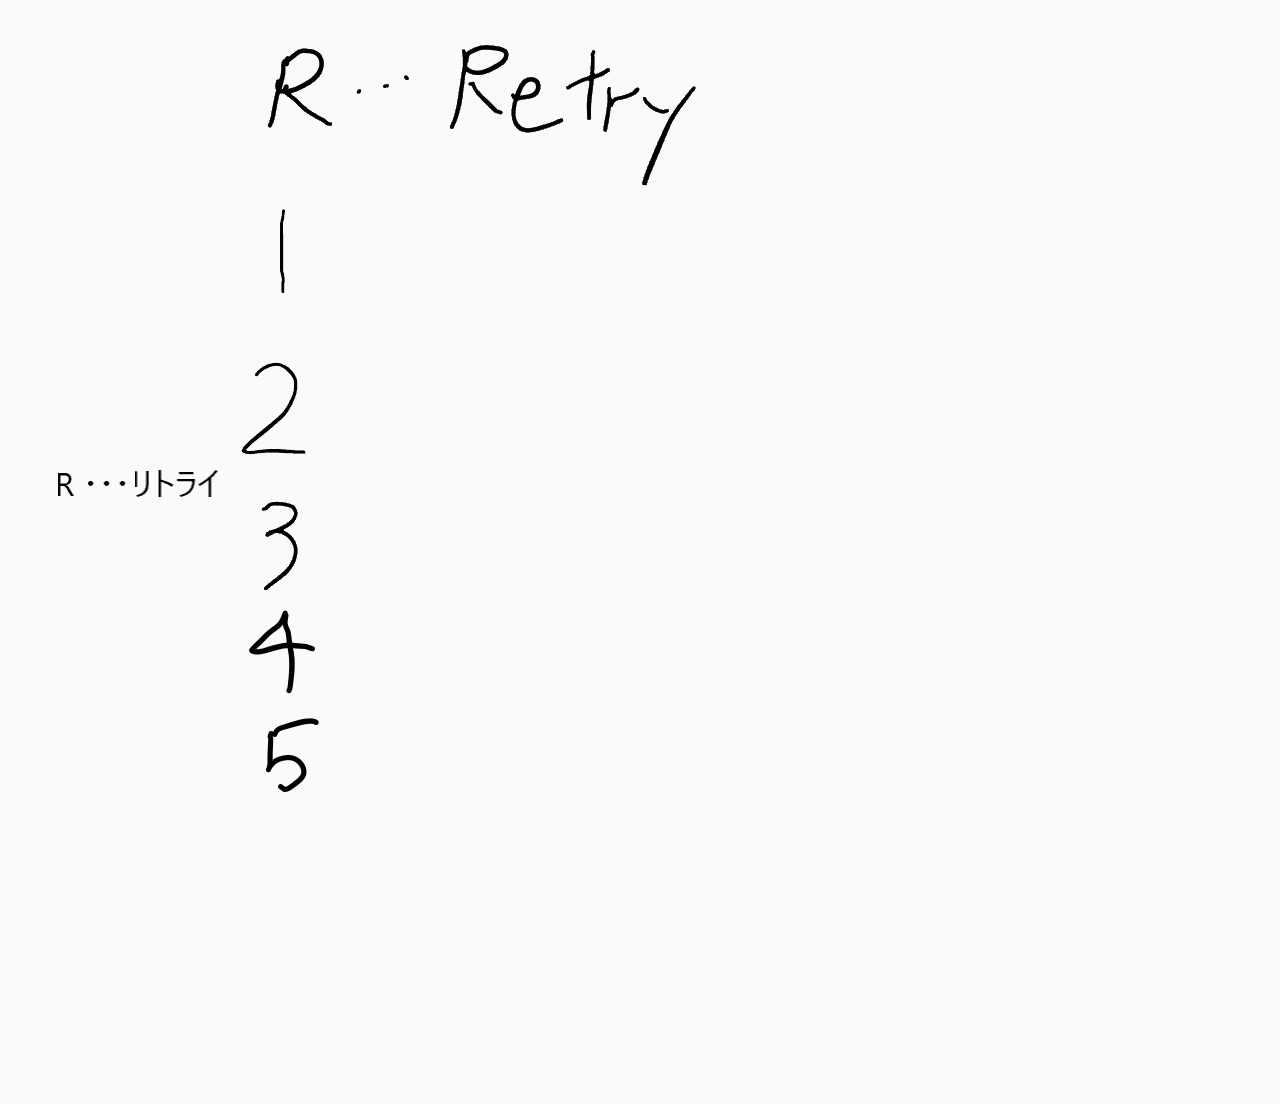 R ... Retry
1
2
R ・・・リトライ
3
4
5